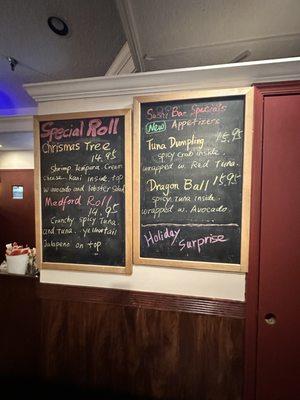 Special Roll
Chrismas Tree
14.95
Shrimp Tempura Cream
Cheese, Kani inside, top
w avocado and lobster Salad
Medford Roll
14.95
Crunchy spicy Tuna
and Tuna, yellowtail
Jalapeno on top
Sushi Bar Specials
New Appetizers
Tuna Dumpling 15.95
spicy crab inside
wrapped w. Red Tuna.
Dragon Ball 15.95
spicy Tuna inside
wrapped w. Avocado.
Holiday Surprise